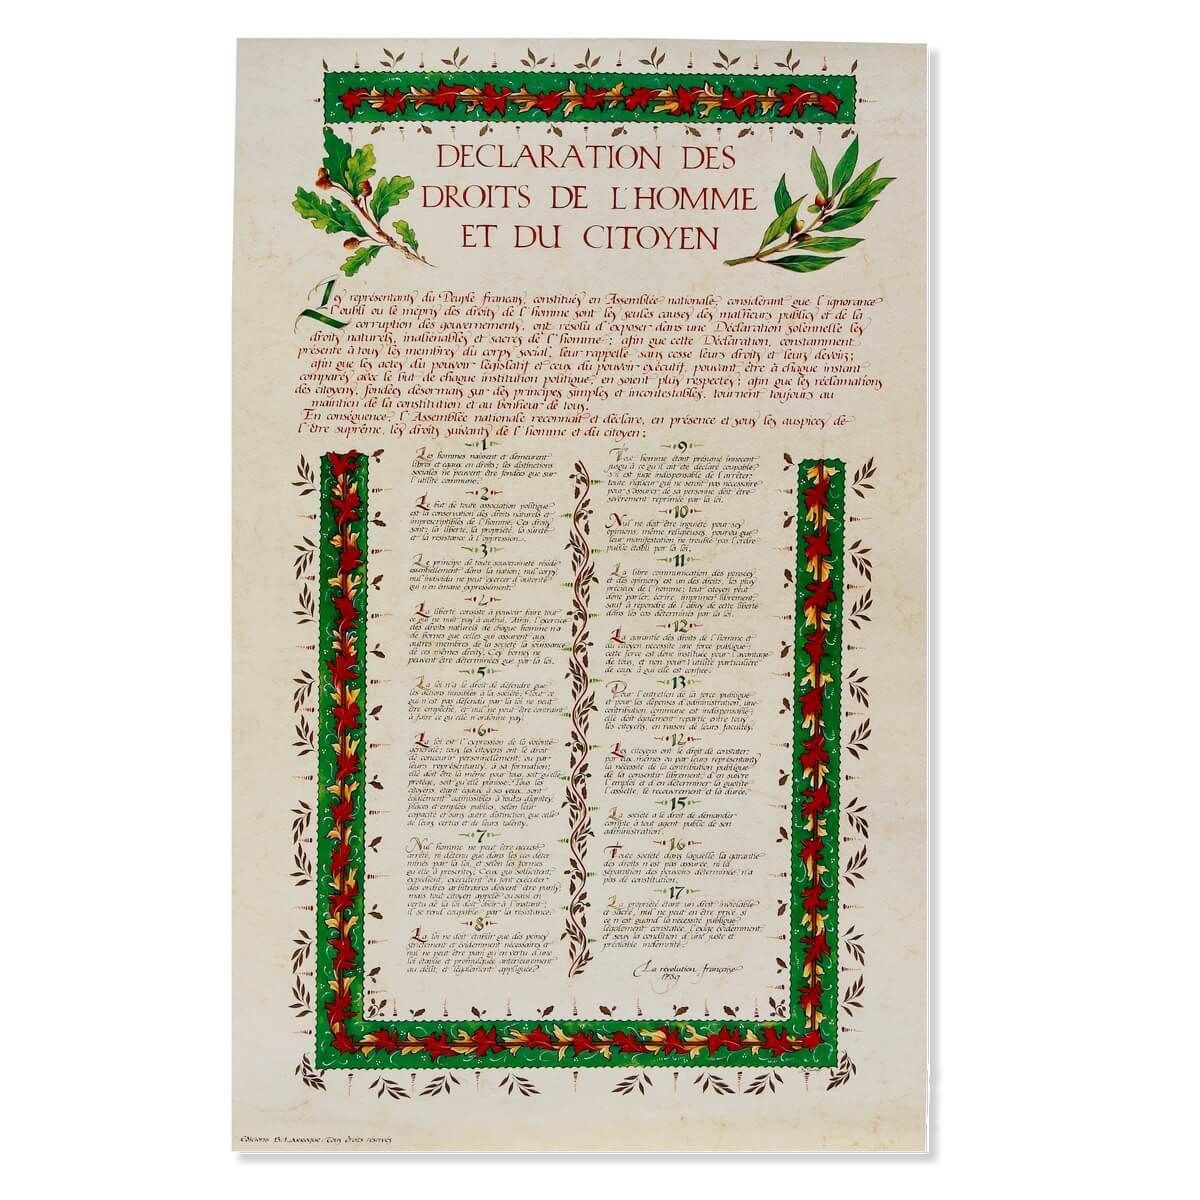 DECLARATION DES
DROITS DE L'HOMME
ET DU CITOYEN
Les représentants du Peuple français, constitués en Assemblée nationale, considérant que l'ignorance
l'oubli ou le mépris des droits de l'homme sont les seules causes des malheurs publics et de la
corruption des gouvernements, ont résolu d'exposer dans une Déclaration solennelle les
droits naturels, inaliénables et sacrés de l'homme; afin que cette Déclaration, constamment
présente à tous les membres du corps social, leur rappelle sans cesse leurs droits et leurs devoirs;
afin que les actes du pouvoir législatif et ceux du pouvoir exécutif, pouvant être à chaque instant
comparés avec le but de chaque institution politique, en soient plus respectés; afin que les réclamations
des citoyens, fondées désormais sur des principes simples et incontestables, tournent toujours au
maintien de la constitution et au bonheur de tous.
En conséquence, l'Assemblée nationale reconnaît et déclare, en présence et sous les auspices de
l'être suprême, les droits suivants de l'homme et du citoyen:
1
Les hommes naissent et demeurent
libres et égaux en droits; les distinctions
sociales ne peuvent être fondées que sur
l'utilité commune.
2
Le but de toute association politique
est la conservation des droits naturels et
imprescriptibles de l'homme. Ces droits
sont: la liberté, la propriété, la sûreté
et la résistance à l'oppression.
3
Le principe de toute souveraineté réside
essentiellement dans la nation; nul corps,
nul individu ne peut exercer d'autorité
qui n'en émane expressément.
4
La liberté consiste à pouvoir faire tout
ce qui ne nuit pas à autrui. Ainsi, l'exercice
des droits naturels de chaque homme n'a
de bornes que celles qui assurent aux
autres membres de la société la jouissance
de ces mêmes droits. Ces bornes ne
peuvent être déterminées que par la loi.
5
La loi n'a le droit de défendre que
les actions nuisibles à la société. Tout ce
qui n'est pas défendu par la loi ne peut
être empêché, et nul ne peut être contraint
à faire ce qu'elle n'ordonne pas.
6
La loi est l'expression de la volonté
générale; tous les citoyens ont le droit
de concourir personnellement, ou par
leurs représentants, à sa formation;
elle doit être la même pour tous, soit qu'elle
protège, soit qu'elle punisse. Tous les
citoyens, étant égaux à ses yeux, sont
également admissibles à toutes dignités
places et emplois publics, selon leur
capacité et sans autre distinction que celle
de leurs vertus et de leurs talents.
7
Nul homme ne peut être accusé,
arrêté, ni détenu que dans les cas déter
minés par la loi, et selon les formes
qu'elle a prescrites. Ceux qui sollicitent,
expédient, exécutent ou font exécuter
des ordres arbitraires doivent être punis;
mais tout citoyen appelé ou saisi en
vertu de la loi doit obéir à l'instant;
il se rend coupable par la résistance.
8
La loi ne doit établir que des peines
strictement et évidemment nécessaires et
nul ne peut être puni qu'en vertu d'une
loi établie et promulguée antérieurement
au délit, et légalement appliquée.
9
Tout homme étant présumé innocent
jusqu'à ce qu'il ait été déclaré coupable,
s'il est jugé indispensable de l'arrêter;
toute rigueur qui ne serait pas nécessaire
pour s'assurer de sa personne doit être
sévèrement réprimée par la loi.
10
Nul ne doit être inquiété pour ses
opinions, même religieuses, pourvu que
leur manifestation ne trouble pas l'ordre
public établi par la loi.
11
La libre communication des pensées
et des opinions est un des droits, les plus
précieux de l'homme; tout citoyen peut
donc parler, écrire, imprimer librement,
sauf à répondre de l'abus de cette liberté
dans les cas déterminés par la loi.
12
La garantie des droits de l'homme et
du citoyen nécessite une force publique;
cette force est donc instituée pour l'avantage
de tous, et non pour l'utilité particulière
de ceux à qui elle est confiée.
13
Pour l'entretien de la force publique
et pour les dépenses d'administration, une
contribution commune est indispensable;
elle doit également répartie entre tous
les citoyens, en raison de leurs facultés.
12
Les citoyens ont le droit de constater,
par eux mêmes ou par leurs représentants
la nécessité de la contribution publique
de la consentir librement, d'en suivre
l'emploi et d'en déterminer la quotité
l'assiette, le recouvrement et la durée.
15
La société a le droit de demander
compte à tout agent public de son
administration.
16
Toute société dans laquelle la garantie
des droits n'est pas assurée, ni la
séparation des pouvoirs déterminée n'a
pas de constitution.
17
La propriété étant un droit inviolable
et sacré, nul ne peut en être privé, si
ce n'est quand la nécessité publique
légalement constatée, l'exige évidemment,
et sous la condition d'une juste et
préalable indemnité.
La révolution française
1789
Editions B. Larroque / Tous droits réservés